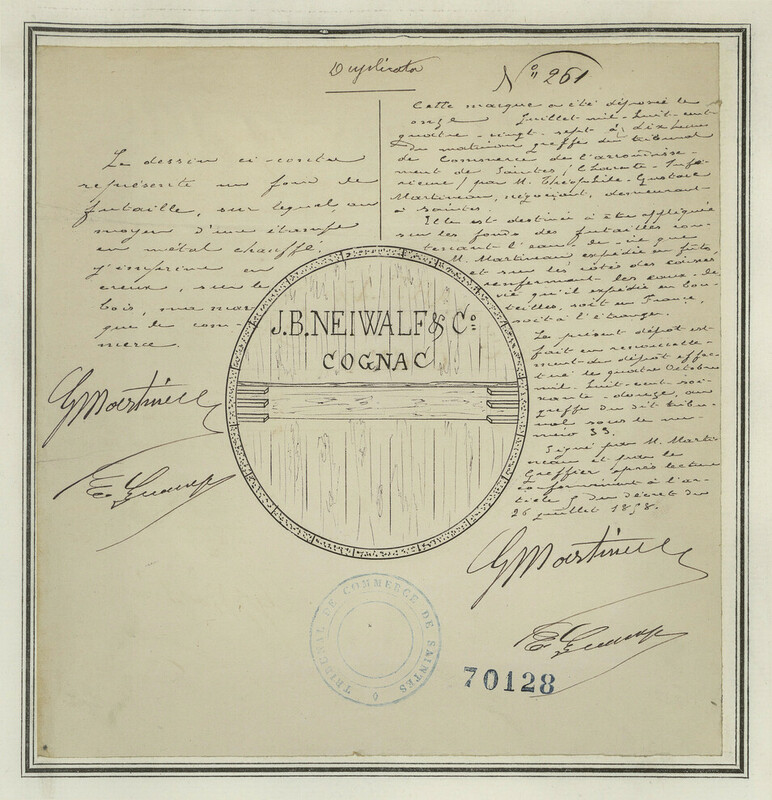 Duplicata
N° 261
Le dessin ci-contre
représente un fond de
futaille, sur lequel, au
moyen d'une étampe
en métal chauffé,
j'imprime en
creux, sur le
bois, ma mar
que de com-
merce.
Cette marque a été déposée le
onze Juillet mil-huit-cent
quatre-vingt-sept à dix heures
du matin au greffe du tribunal
de Commerce de l'arrondisse-
ment de Saintes (Charente-Infé-
rieure) par M. Théophile-Gustave
Martineau, négociant, demeurant
à Saintes.
Elle est destinée à être appliquée
sur les fonds des futailles con-
tenant l'eau-de-vie que
M. Martineau expédie en fûts,
et sur les côtés des caisses
renfermant les eaux-de-
vie qu'il expédie en bou-
teilles, soit en France,
soit à l'étranger.
Le présent dépôt est
fait en renouvelle-
ment du dépôt effec-
tué le quatre Octobre
mil-huit-cent-soi-
xante-douze, au
greffe du dit tribu-
nal sous le nu-
méro 33.
Signé par M. Marti-
neau et par le
Greffier après lecture
conformément à l'ar-
ticle 5 du décret du
26 juillet 1858.
J.B. NEIWALF & Co:
COGNAC
G Martineau
G Martineau
TRIBUNAL DE COMMERCE DE SAINTES
70128